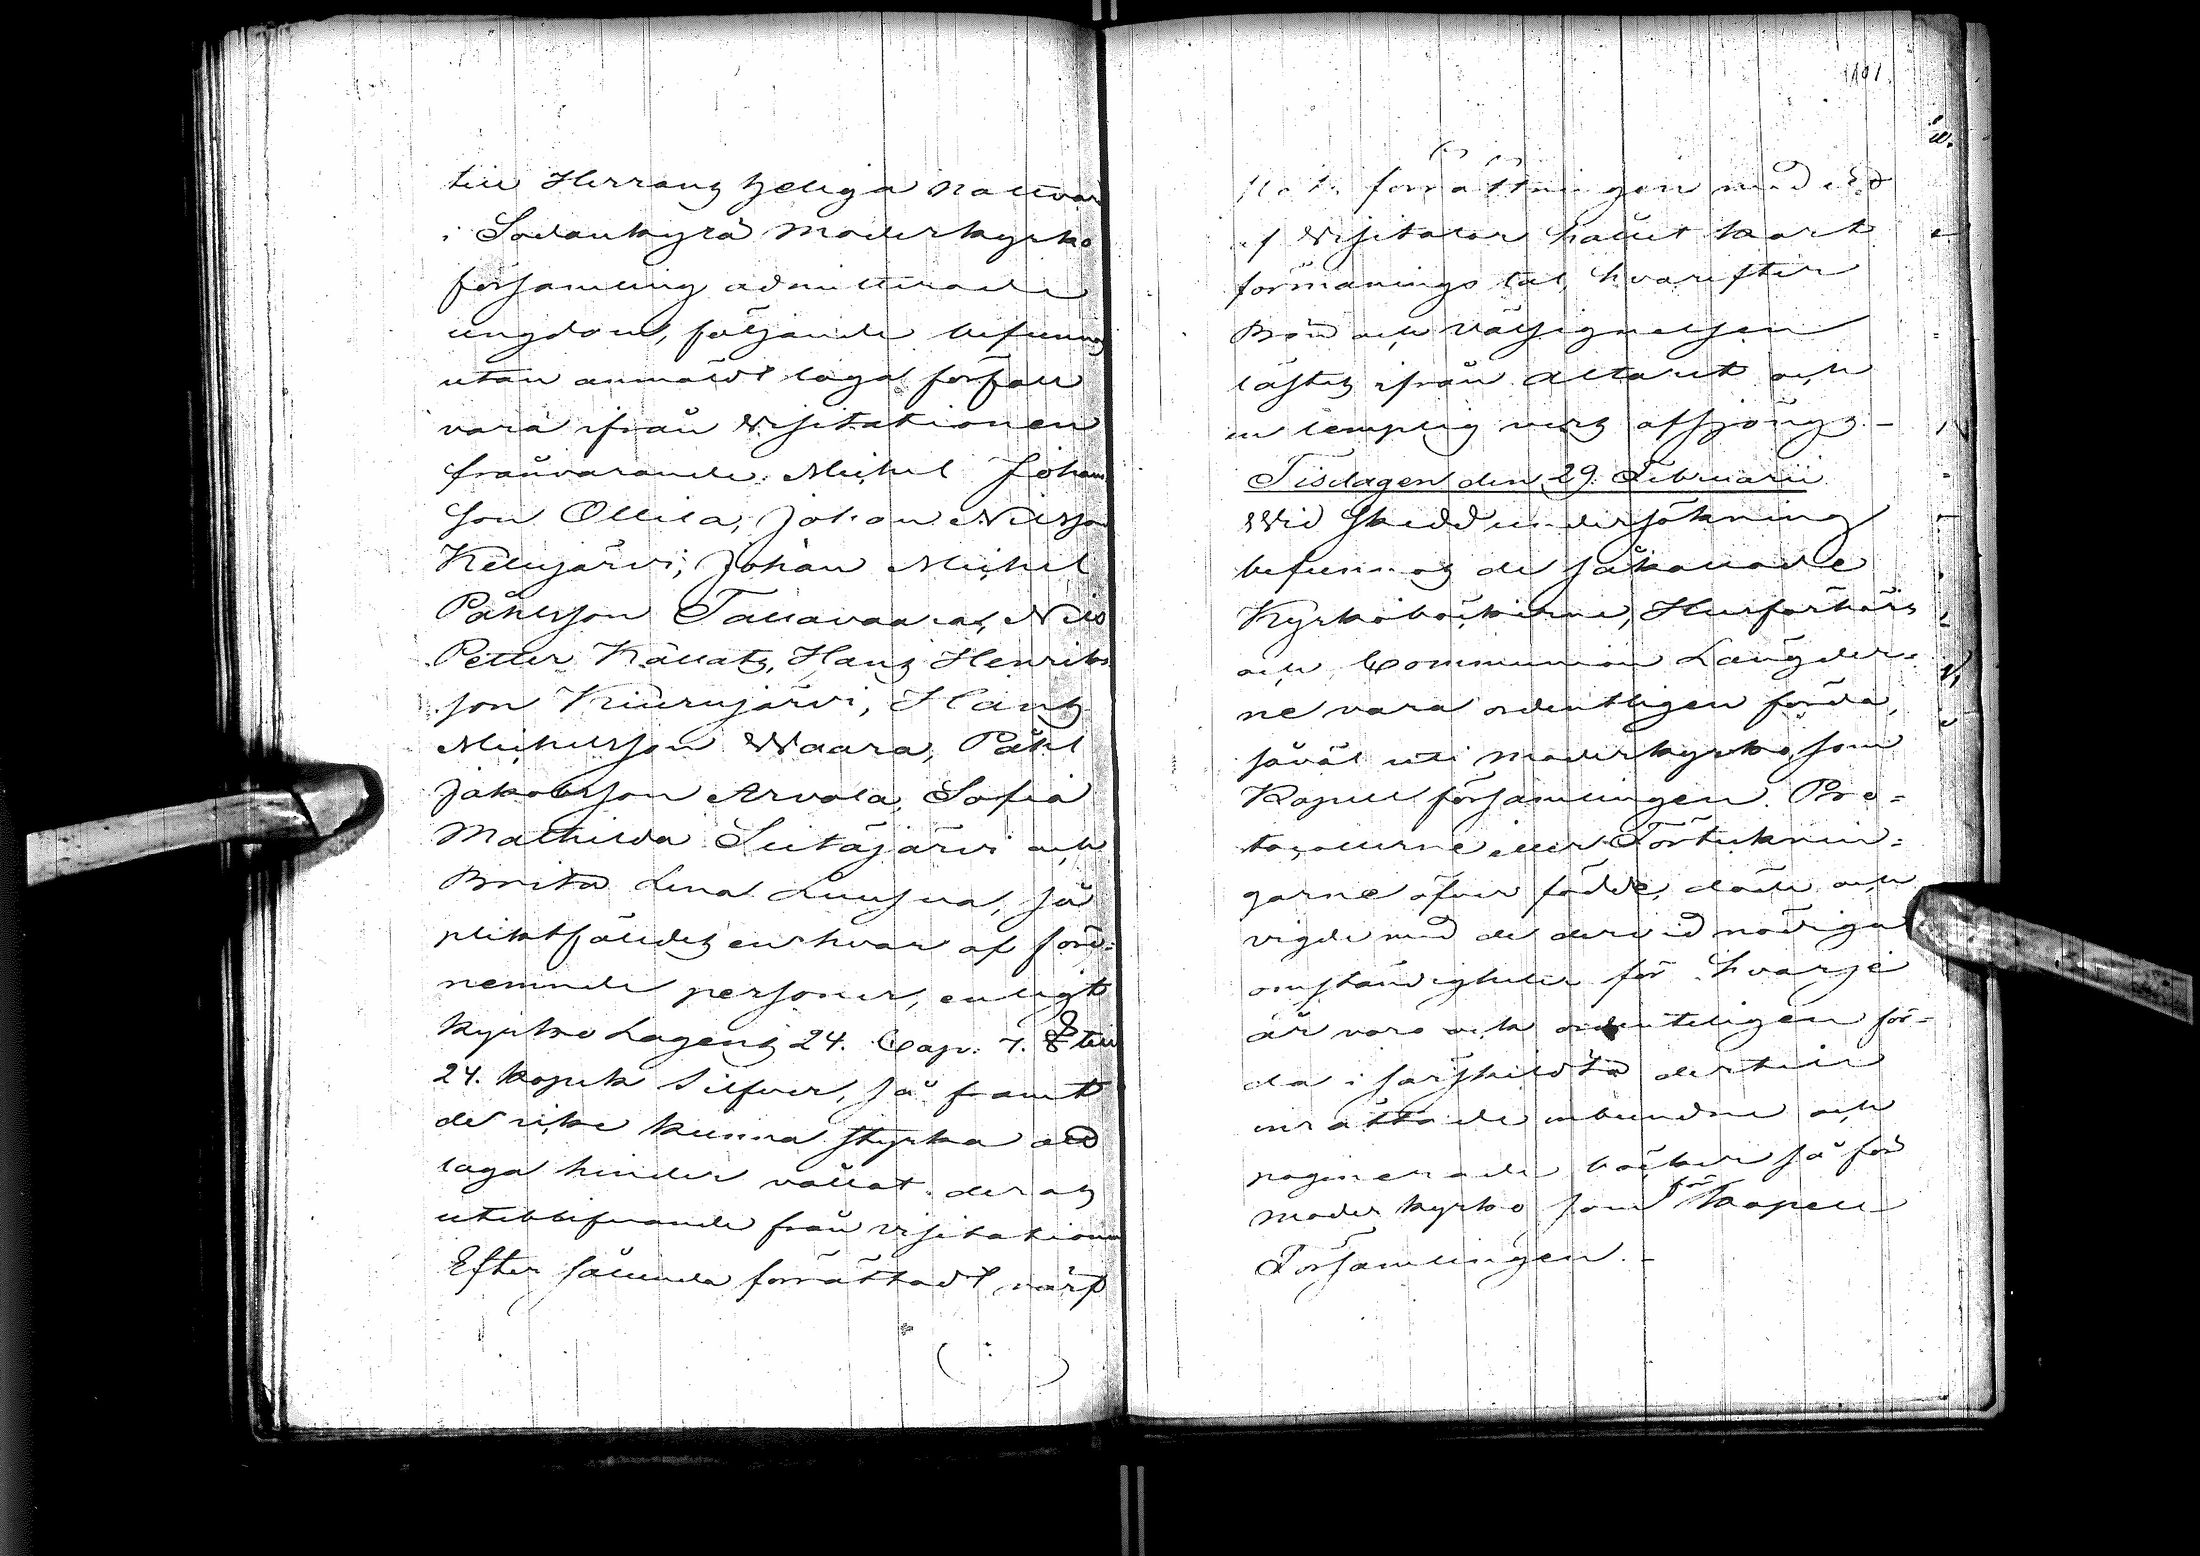 till Herrans heliga nattvar
i Sodankyrä Moderkyrko
församling admitterade
ungdom, följande befunnos
utan anmäldt laga förfall
vara ifrån Visitationen
frånvarande: Michel Johans
son Ollila, Johan Nilsson
Kelujärvi, Johan Michel
Påhlsson Tallavaara, Nils
Petter Källats, Hans Henriks
son Kiurujärvi, Hans
Michelsson Waara, Påhl
Jakobsson Arvola, Sofia
Mathilda Siitäjärvi och
Brita Lena Luusua, så
pliktfäldes en hvar af för=
nemnde personer, enligt
Kyrko Lagens 24. Cap. 7. § till
24. kopek silfver, så framt
de icke kunna styrka att
laga hinder vållat deras
uteblifvande från visitationen
Efter sålunda förrättadt närf
101.
förrättningen med ett
af Visitator hållit kort
förmanings tal, hvarefter
Bön och Välsignelsen
lästes ifrån altaret och
en lempelig vers afsjöngs. -
Tisdagen den 29 Februarii
Wid skedd undersökning
befunnos de så kallade
Kyrkoböckerne, Husförhörs
och Communion Längder=
ne vara ordentligen förda,
såväl uti moderkyrko, som
Kapell församlingen. Pro=
tocollerne eller Förteknin=
garne öfver födde, döde och
vigde med de dervid nödiga
omständigheter för hvarje
år voro ock ordenteligen för=
da i särskildta dertill
inrättade inbundne och
paginerade böcker så för
moder kyrko som för Kapell
Församlingen. -